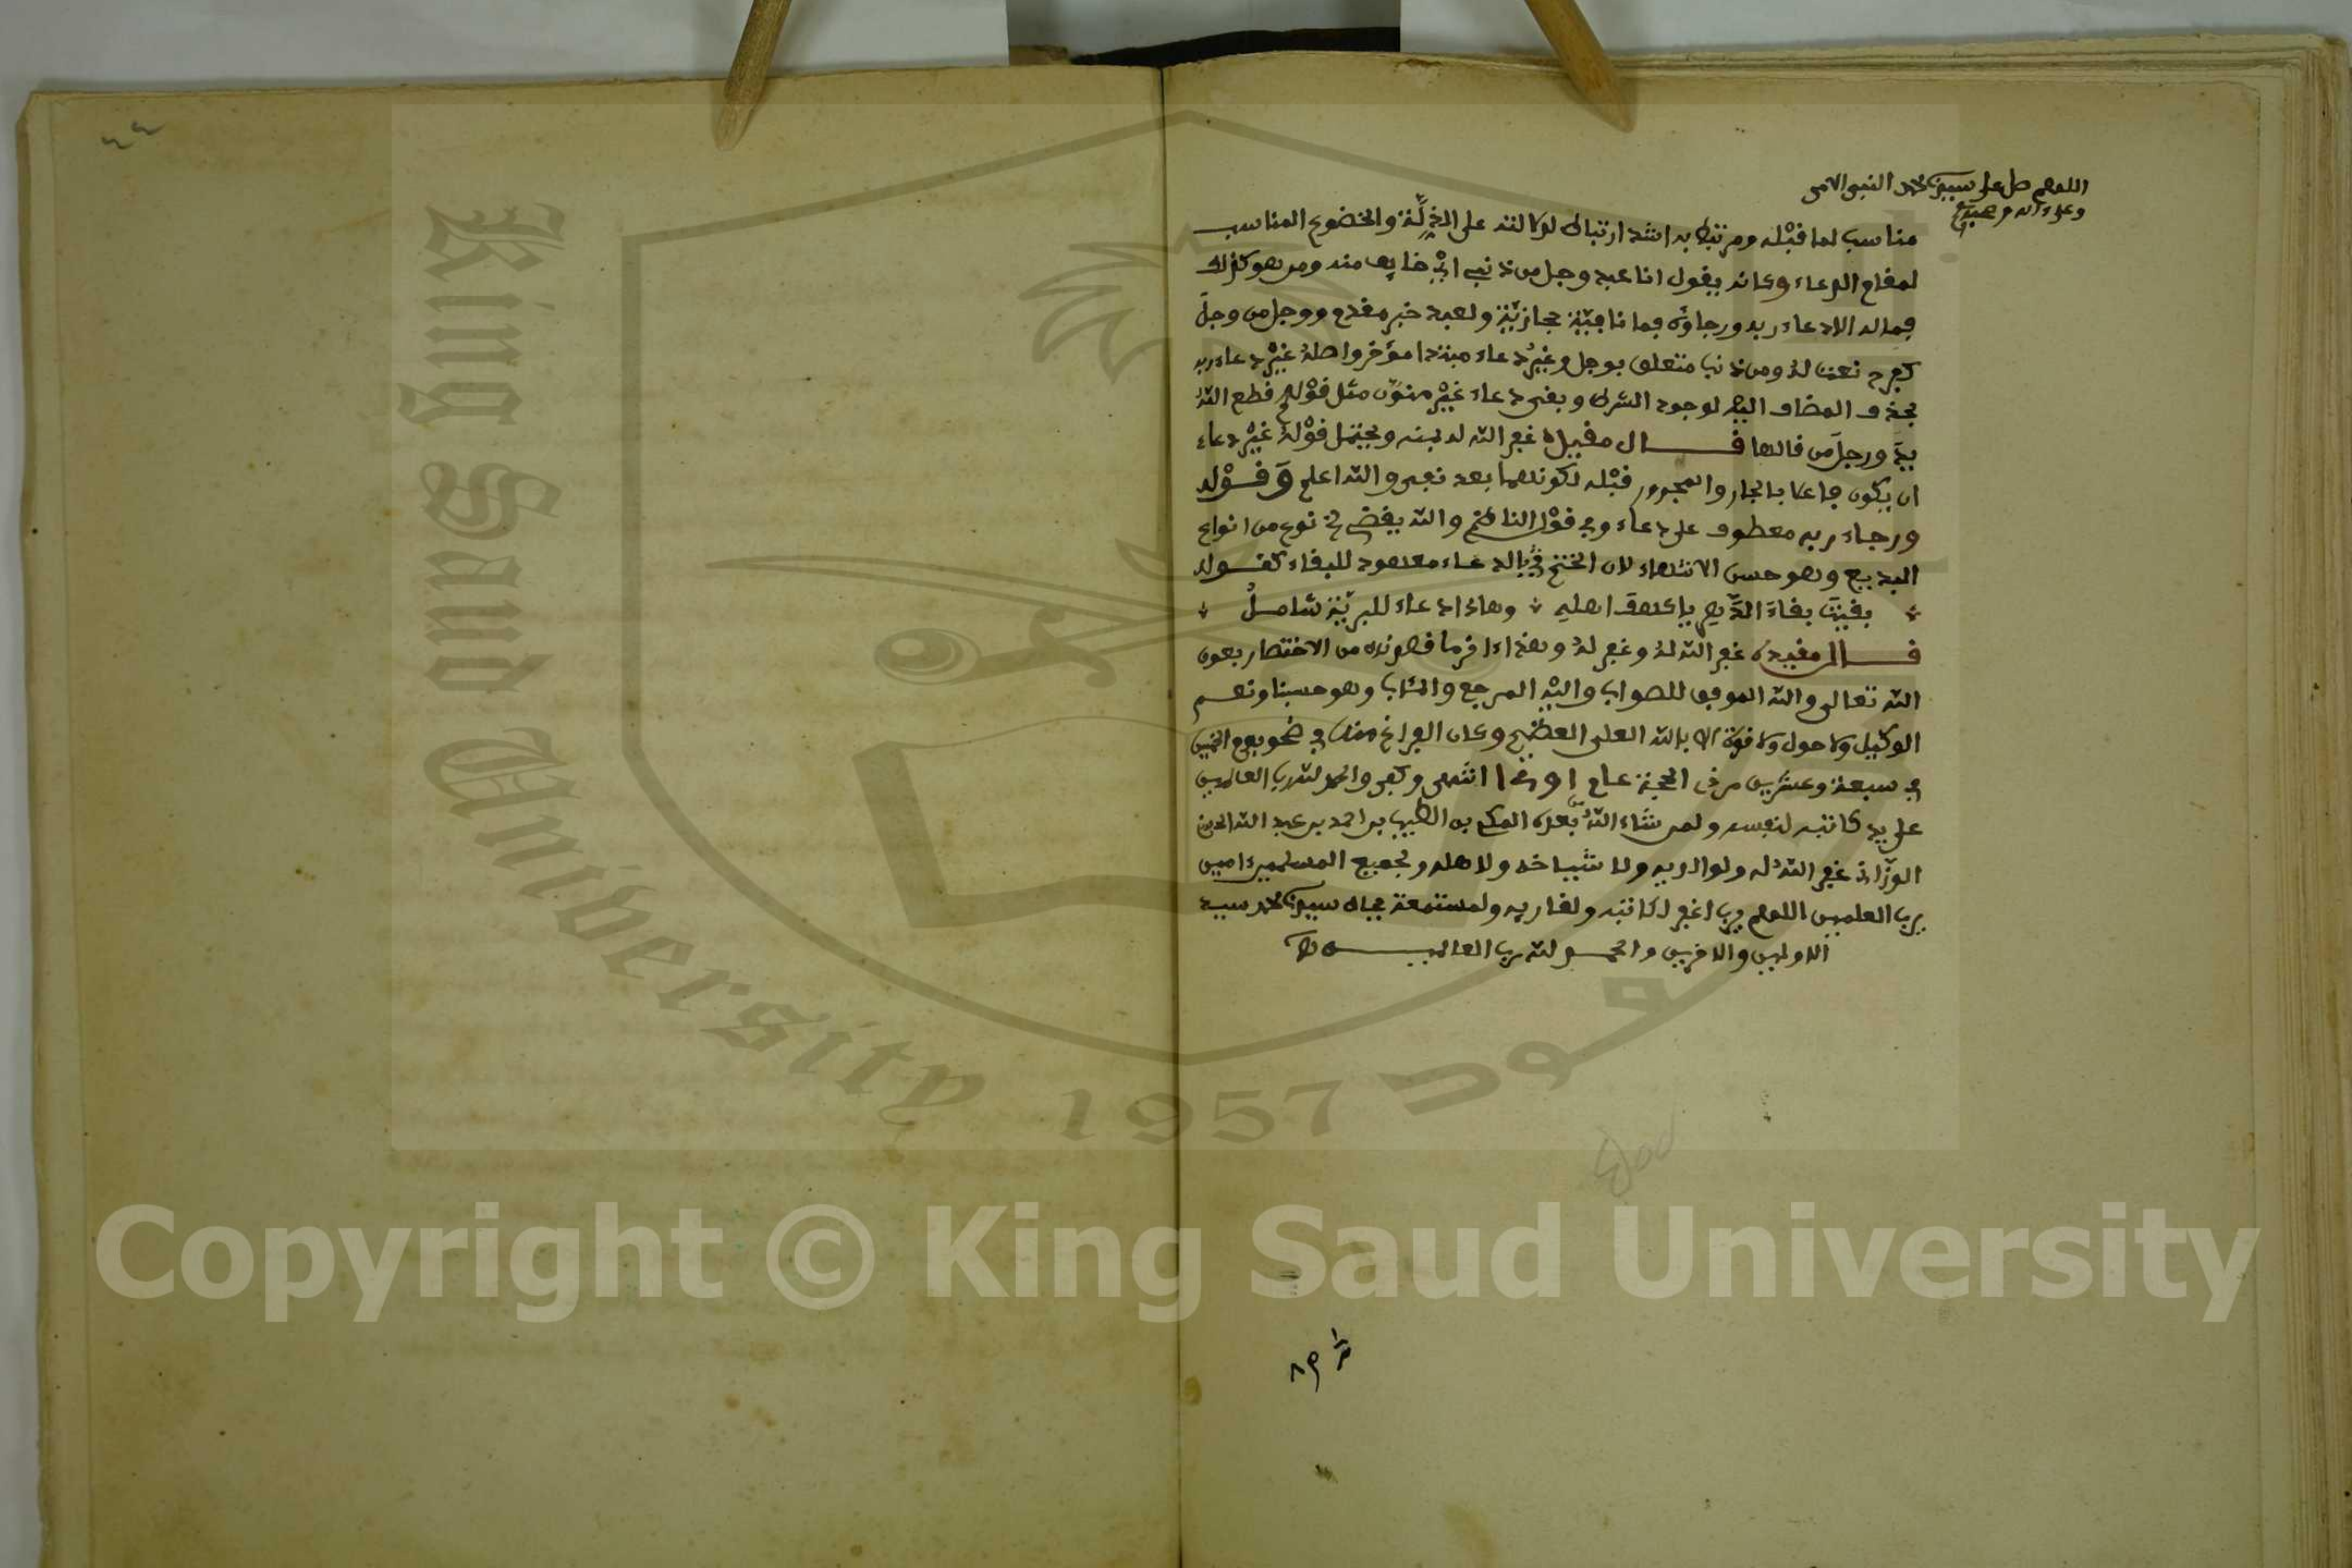 اللهم صل على سيدنا محمد النبي الامى
وعلى اله وصحبه
مناسب لما قبله ومرتبط به اشد ارتباط لدلالته على الذلة والخضوع المناسب
لمقام الدعاء وكانه يقول انا عبد وجل من ذنبي اي خايف منه ومن هو كذلك
فما له الا دعاء ربه ورجاؤه فما نافية حجازية ولعبد خبر مقدم ووجل من وجل
كفرح نعت له ومن ذنب متعلق بوجل وغير دعاء مبتدا مؤخر واصله غير دعاء ربه
بحذف المضاف اليه لوجود الشرط وبقى دعاء غير منون مثل قولهم قطع الله
يد ورجل من قالها قال مقيده غفر الله له بمنه ويحتمل قوله غير دعاء
ان يكون فاعلا بالجار والمجرور قبله لكونهما بعد نفى والله اعلم وقوله
ورجاء ربه معطوف على دعاء وفى قول الناظم والله يقضى نوع من انواع
البديع وهو حسن الانتهاء لان الختم بالدعاء معهود للبقاء كقوله
بقيت بقاء الدهر يا كهف اهله وهاذا دعاء للبرية شامل
قال مقيده غفر الله له وهذا ءاخر ما قصدته من الاختصار بعون
الله تعالى والله الموفق للصواب واليه المرجع والمئاب وهو حسبنا ونعم
الوكيل ولا حول ولا قوة الا بالله العلى العظيم وكان الفراغ منه فى ضحو يوم الخميس
فى سبعة وعشرين من ذى الحجة عام انتهى وكفى والحمد لله رب العالمين
على يد كاتبه لنفسه ولمن شاء الله من بعده الطيب بن احمد بن عبد الله
الوزانى غفر الله له ولوالديه ولاشياخه ولاهله ولجميع المسلمين ءامين
يرب العلمين اللهم يرب اغفر لكاتبه ولقاريه ولمستمعه بجاه سيدنا محمد سيد
الاولين والاخرين والحمد لله رب العالمين
King Saud University
1957
Copyright © King Saud University